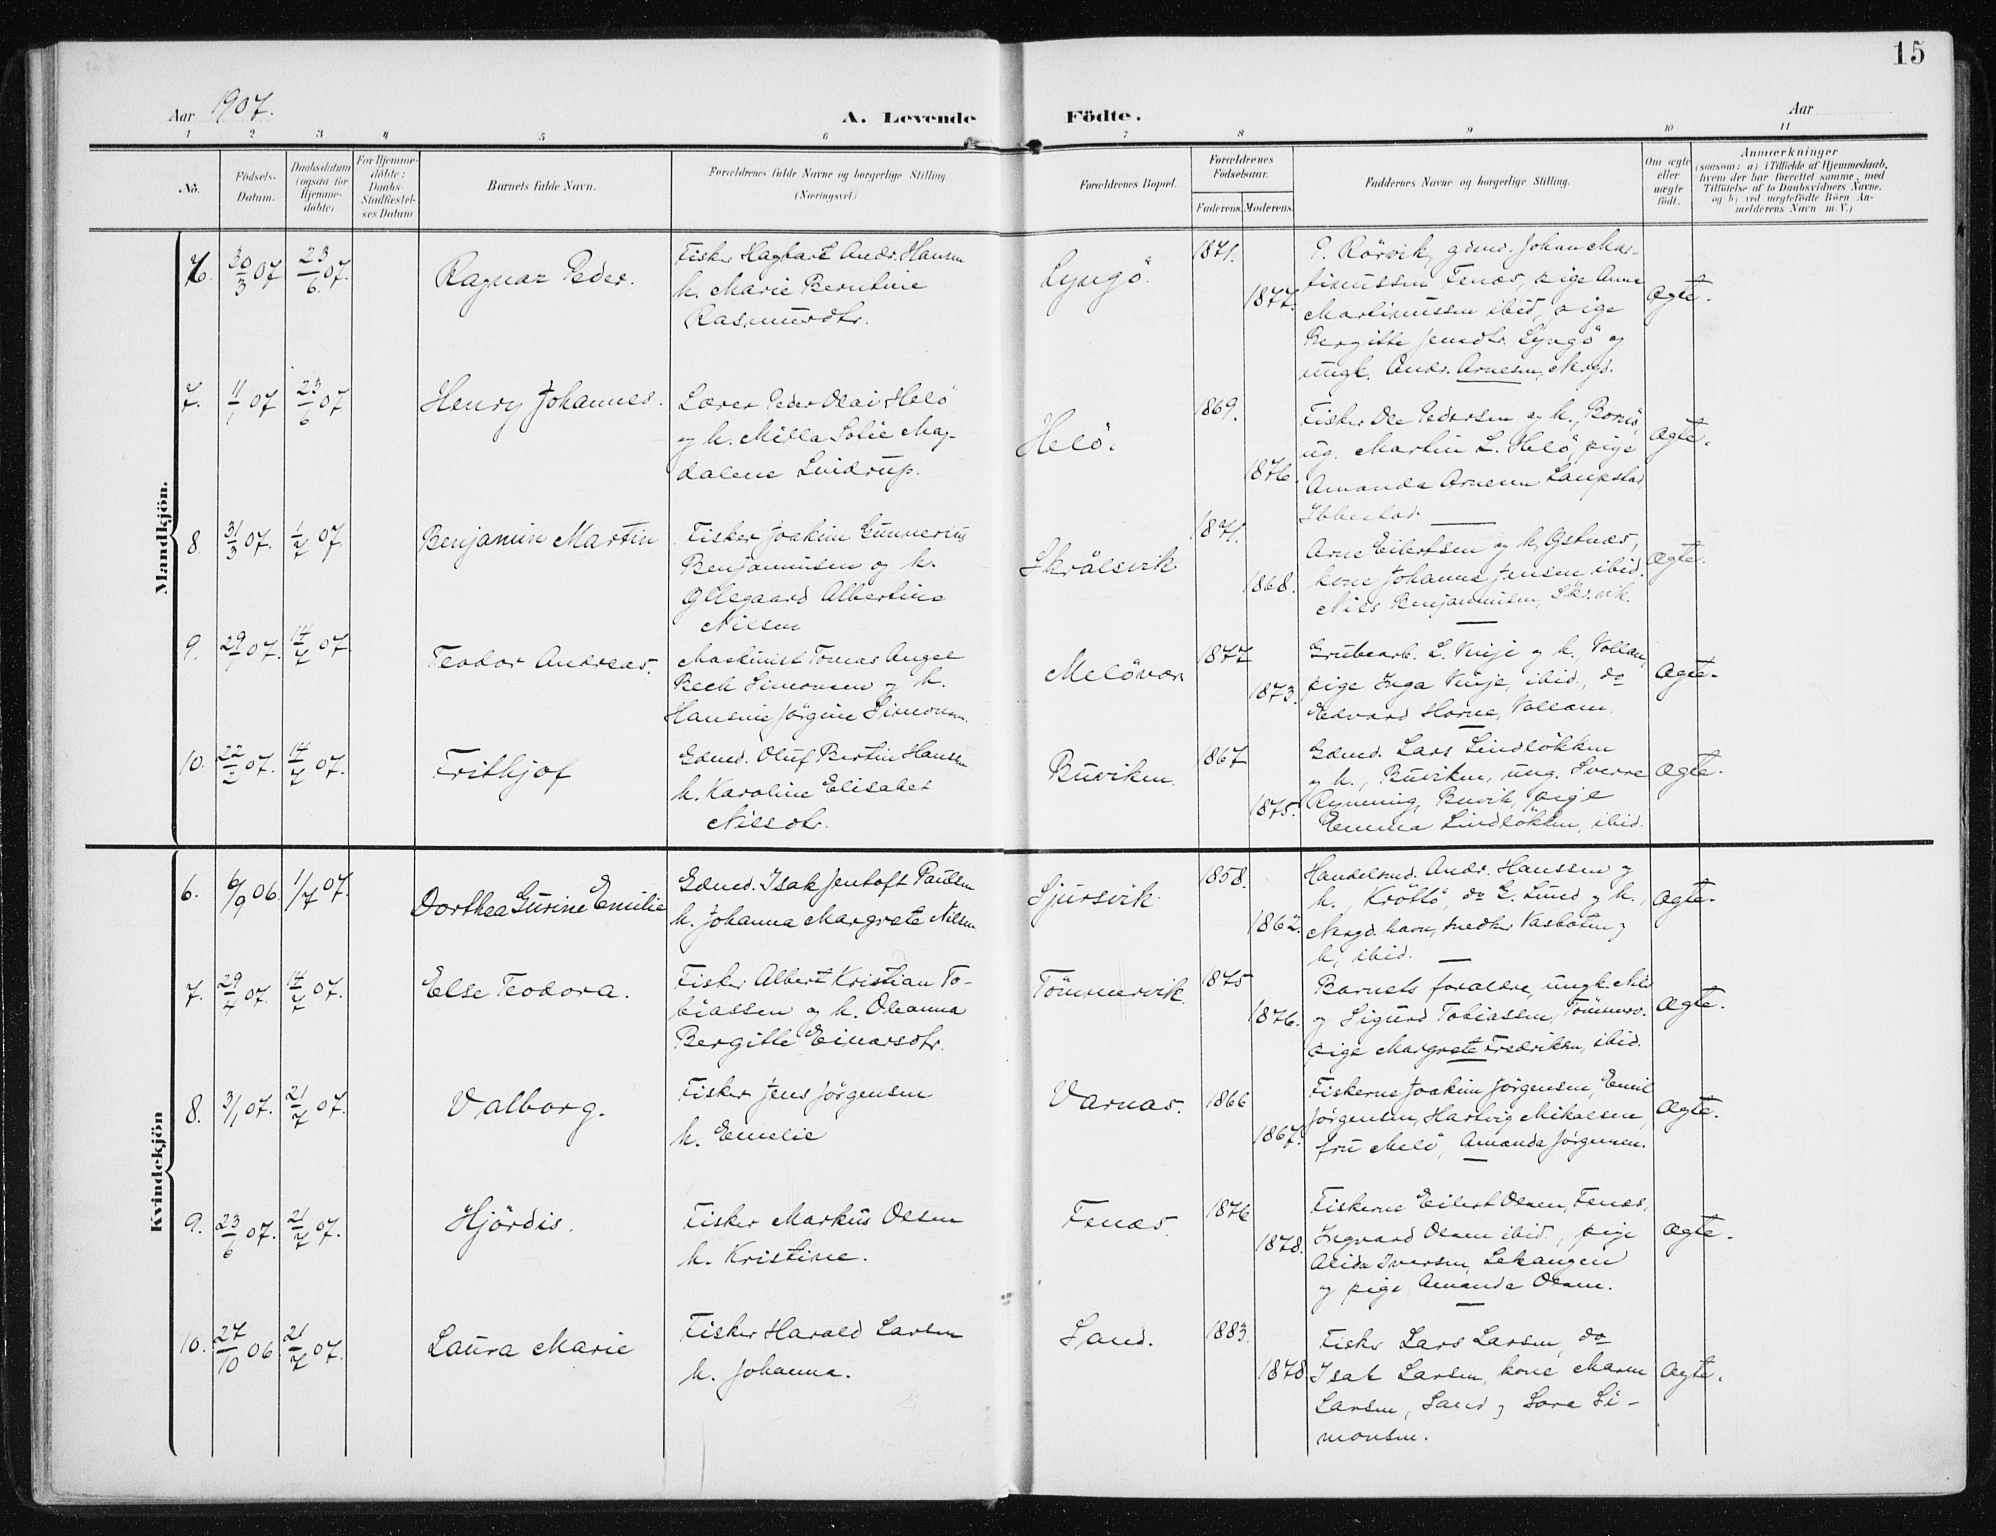 15
Aar 1907.
A. Levende Födte.
Aar
1 2 3 4 5 6 7 8 9 10 11
No. Födsels-Datum. Daabsdatum (ogsaa for Hjemme-döbte) For Hjemme-döbte: Daabs-Stadfæstel-ses Datum Barnets fulde Navn. Forældrenes fulde Navne og borgerlige Stilling (Næringsvei) Forældrenes Bopæl. Forældrenes Födselsaar. Faderens. Moderens. Faddernes Navne og borgerlige Stilling. Om ægte eller uægte födt. Anmærkninger (saasom: a) i Tilfælde af Hjemmedaab, hvem der har forrettet samme, med Tilföielse af to Daabsvidners Navne, og b) ved uægtefödte Börn An-melderens Navn m. V.)
Mandkjön.
6. 30/3 07 23/6 07. Ragnar Peder.
Fisker Hagbart Andr. Hansen
h. Marie Berntine
Rasmusdtr.
Lyngö. 1871. 1877.
P. Rörvik, gdmd. Johan Mar-
tinussen Fenæs, pige Anna
Martinussen ibid, pige
Bergitte Jensdtr. Lyngö og
ungk. Andr. Arnesen, Megd.
Ægte.
7. 11/1 07 23/6 07 Henry Johannes.
Lærer Peder Olai Helö
og h. Milla Sofie Mag-
dalene Lindrup.
Helö. 1869. 1876.
Fisker Ole Pedersen og h.,
ug. Martin L. Helö, pige
Amanda
Ibbestad.
Ægte.
8. 31/3 07. 1/7 07. Benjamin Martin
Fisker Joakim Gunnerius
Benjaminsen og h.
Ollegaard Albertine
Nilsen
Skrålsvik 1871. 1868.
Arne Eilertsen og h,
kone Johanna Jensen ibid.
Nils Benjaminsen,
Ægte.
9. 29/1 07. 14/7 07. Teodor Andreas.
Maskinist Tomas Angel
Bech Simonsen og h.
Hansine Jörgine Simonsen.
Melövær 1877 1873.
Grubearb. L. Vinje og h., Vollan,
pige Inga Vinje, ibid., do
Edvard Horne, Vollan.
Ægte.
10. 22/2 07. 14/7 07. Frithjof
Gdmd. Oluf Bertin Hansen
h. Karoline Elisabet
Nilsdtr.
Buviken. 1867 1875.
Gdmd. Lars Lindlökken
og h., Buviken, ung. Sverre
Rynning, Buvik, pige
Emma Lindlökken, ibid.
Ægte.
Kvindekjön
6. 6/9 06. 1/7 07. Dorthea Gurine Emilie
Gdmd. Isak Jentoft Paulsen
h. Johanna Margrete Nilsen
Sjursvik. 1858. 1862.
Handelsmd. Andr. Hanssen og
h., Kröttö, do G. Lund og h.,
Megd. havn, snedker Vasbotn og
h, ibid.
Ægte.
7. 29/4 07. 14/7 07. Else Teodora.
Fisker Albert Kristian To-
biassen og h. Oleanna
Bergitte Einarsdtr.
Tömmervik. 1875 1876.
Barnets forældre, ungk. Nils
og Sigurd Tobiassen, Tömmerv.
pige Margrete Fredriksen, ibid.
Ægte.
8. 3/1 07. 21/7 07. Valborg.
Fisker Jens Jörgensen
h. Emelie
Varnæs. 1866 1867.
Fiskerne Joakim Jörgensen, Emil
Jörgensen, Hartvig Mikalsen,
fru Melö, Amanda Jörgensen.
Ægte.
9. 23/6 07. 21/7 07. Hjördis.
Fisker Markus Olsen
h. Kristine.
Fenæs. 1876 1878.
Fiskerne Eilert Olsen, Fenæs,
Ingvard Olsen ibid., pige
Alida Iversen, Lekangen
og pige Amanda Olsen.
Ægte.
10. 27/10 06 21/7 07. Laura Marie
Fisker Harald Larsen
h. Johanna.
Sand. 1883. 1878.
Fisker Lars Larsen, do
Isak Larsen, kone Maren
Larsen, Sand og Lars Si-
monsen.
Ægte.